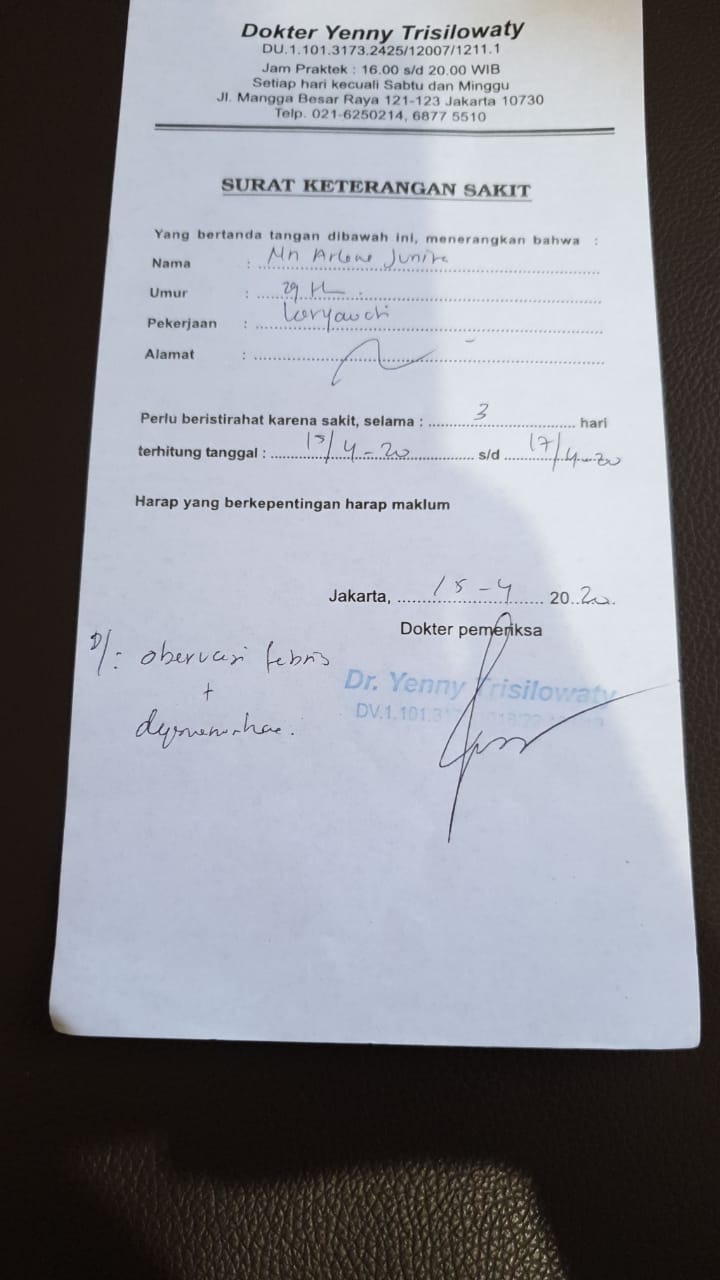 Dokter Yenny Trisilowaty
DU.1.101.3173.2425/12007/1211.1
Jam Praktek : 16.00 s/d 20.00 WIB
Setiap hari kecuali Sabtu dan Minggu
Jl. Mangga Besar Raya 121-123 Jakarta 10730
Telp. 021-6250214, 6877 5510
SURAT KETERANGAN SAKIT
Yang bertanda tangan dibawah ini, menerangkan bahwa :
Nama : Nn Arlene Junita
Umur : 29 th
Pekerjaan : karyawati
Alamat :
Perlu beristirahat karena sakit, selama : 3 hari
terhitung tanggal : 15/4-20 s/d 17/4-20
Harap yang berkepentingan harap maklum
Jakarta, 15-4 2020
Dokter pemeriksa
D/: obervasi febris
Dr. Yenny Trisilowaty
+
DV.1.101.